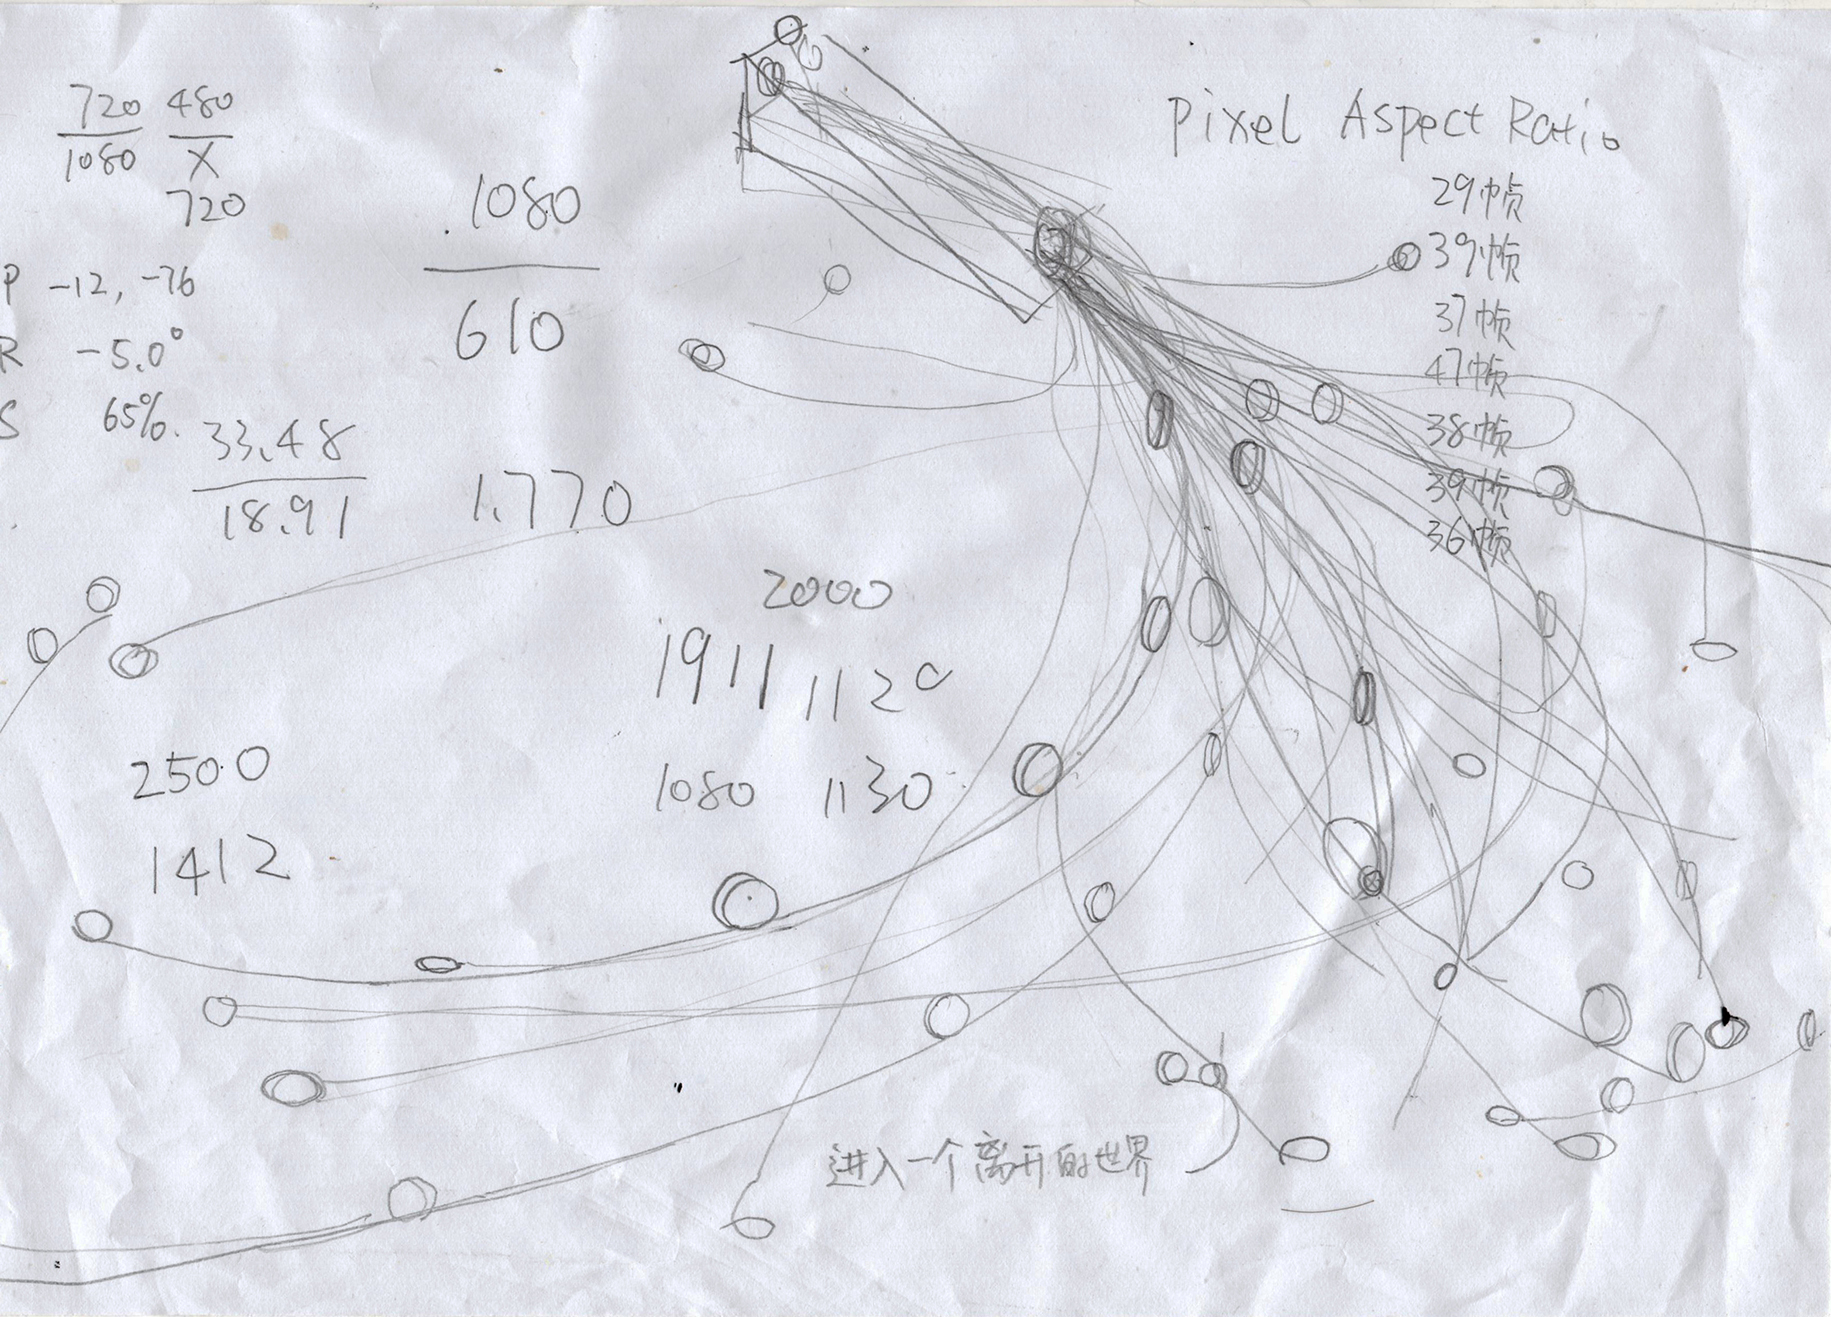 720 480
1080 X
720
P -12, -76
R -5.0°
S 65%.
33.48
18.91
.1080
610
1.770
2500
1412
2000
1911 1120
1080 1130
Pixel Aspect Ratio
29帧
39帧
37帧
47帧
38帧
39帧
36帧
进入一个离开的世界